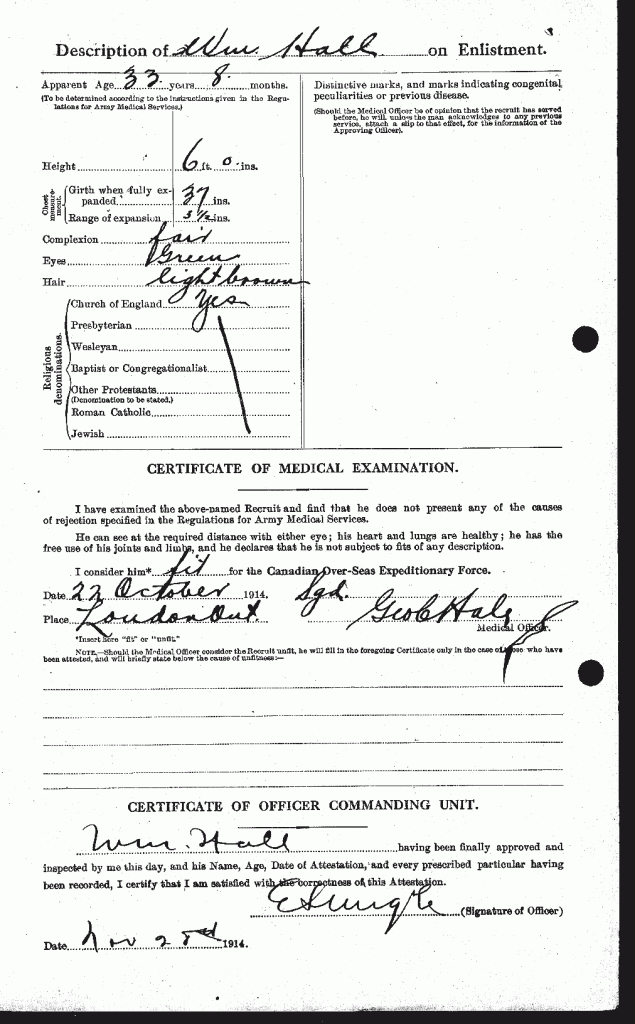 Description of Wm. Hall on Enlistment.
Apparent Age 33 years 8 months.
(To be determined according to the instructions given in the Regu-
lations for Army Medical Services.)
Height 6 ft. 0 ins.
Chest measurement.
Girth when fully ex-
panded 37 ins.
Range of expansion 3 1/2 ins.
Complexion fair
Eyes Green
Hair light brown
Religious denominations.
Church of England Yes
Presbyterian
Wesleyan
Baptist or Congregationalist
Other Protestants
(Denomination to be stated.)
Roman Catholic
Jewish
Distinctive marks, and marks indicating congenital
peculiarities or previous disease.
(Should the Medical Officer be of opinion that the recruit has served
before, he will, unless the man acknowledges to any previous
service, attach a slip to that effect, for the information of the
Approving Officer).
CERTIFICATE OF MEDICAL EXAMINATION.
I have examined the above-named Recruit and find that he does not present any of the causes
of rejection specified in the Regulations for Army Medical Services.
He can see at the required distance with either eye; his heart and lungs are healthy; he has the
free use of his joints and limbs, and he declares that he is not subject to fits of any description.
I consider him* fit for the Canadian Over-Seas Expeditionary Force.
Date 22 October 1914. Sgd.
Place London Ont. Geo C Hale
Medical Officer.
*Insert here "fit" or "unfit."
NOTE.—Should the Medical Officer consider the Recruit unfit, he will fill in the foregoing Certificate only in the case of those who have
been attested, and will briefly state below the cause of unfitness:—
CERTIFICATE OF OFFICER COMMANDING UNIT.
Wm. Hall having been finally approved and
inspected by me this day, and his Name, Age, Date of Attestation, and every prescribed particular having
been recorded, I certify that I am satisfied with the correctness of this Attestation.
(Signature of Officer)
Date Nov 1914.